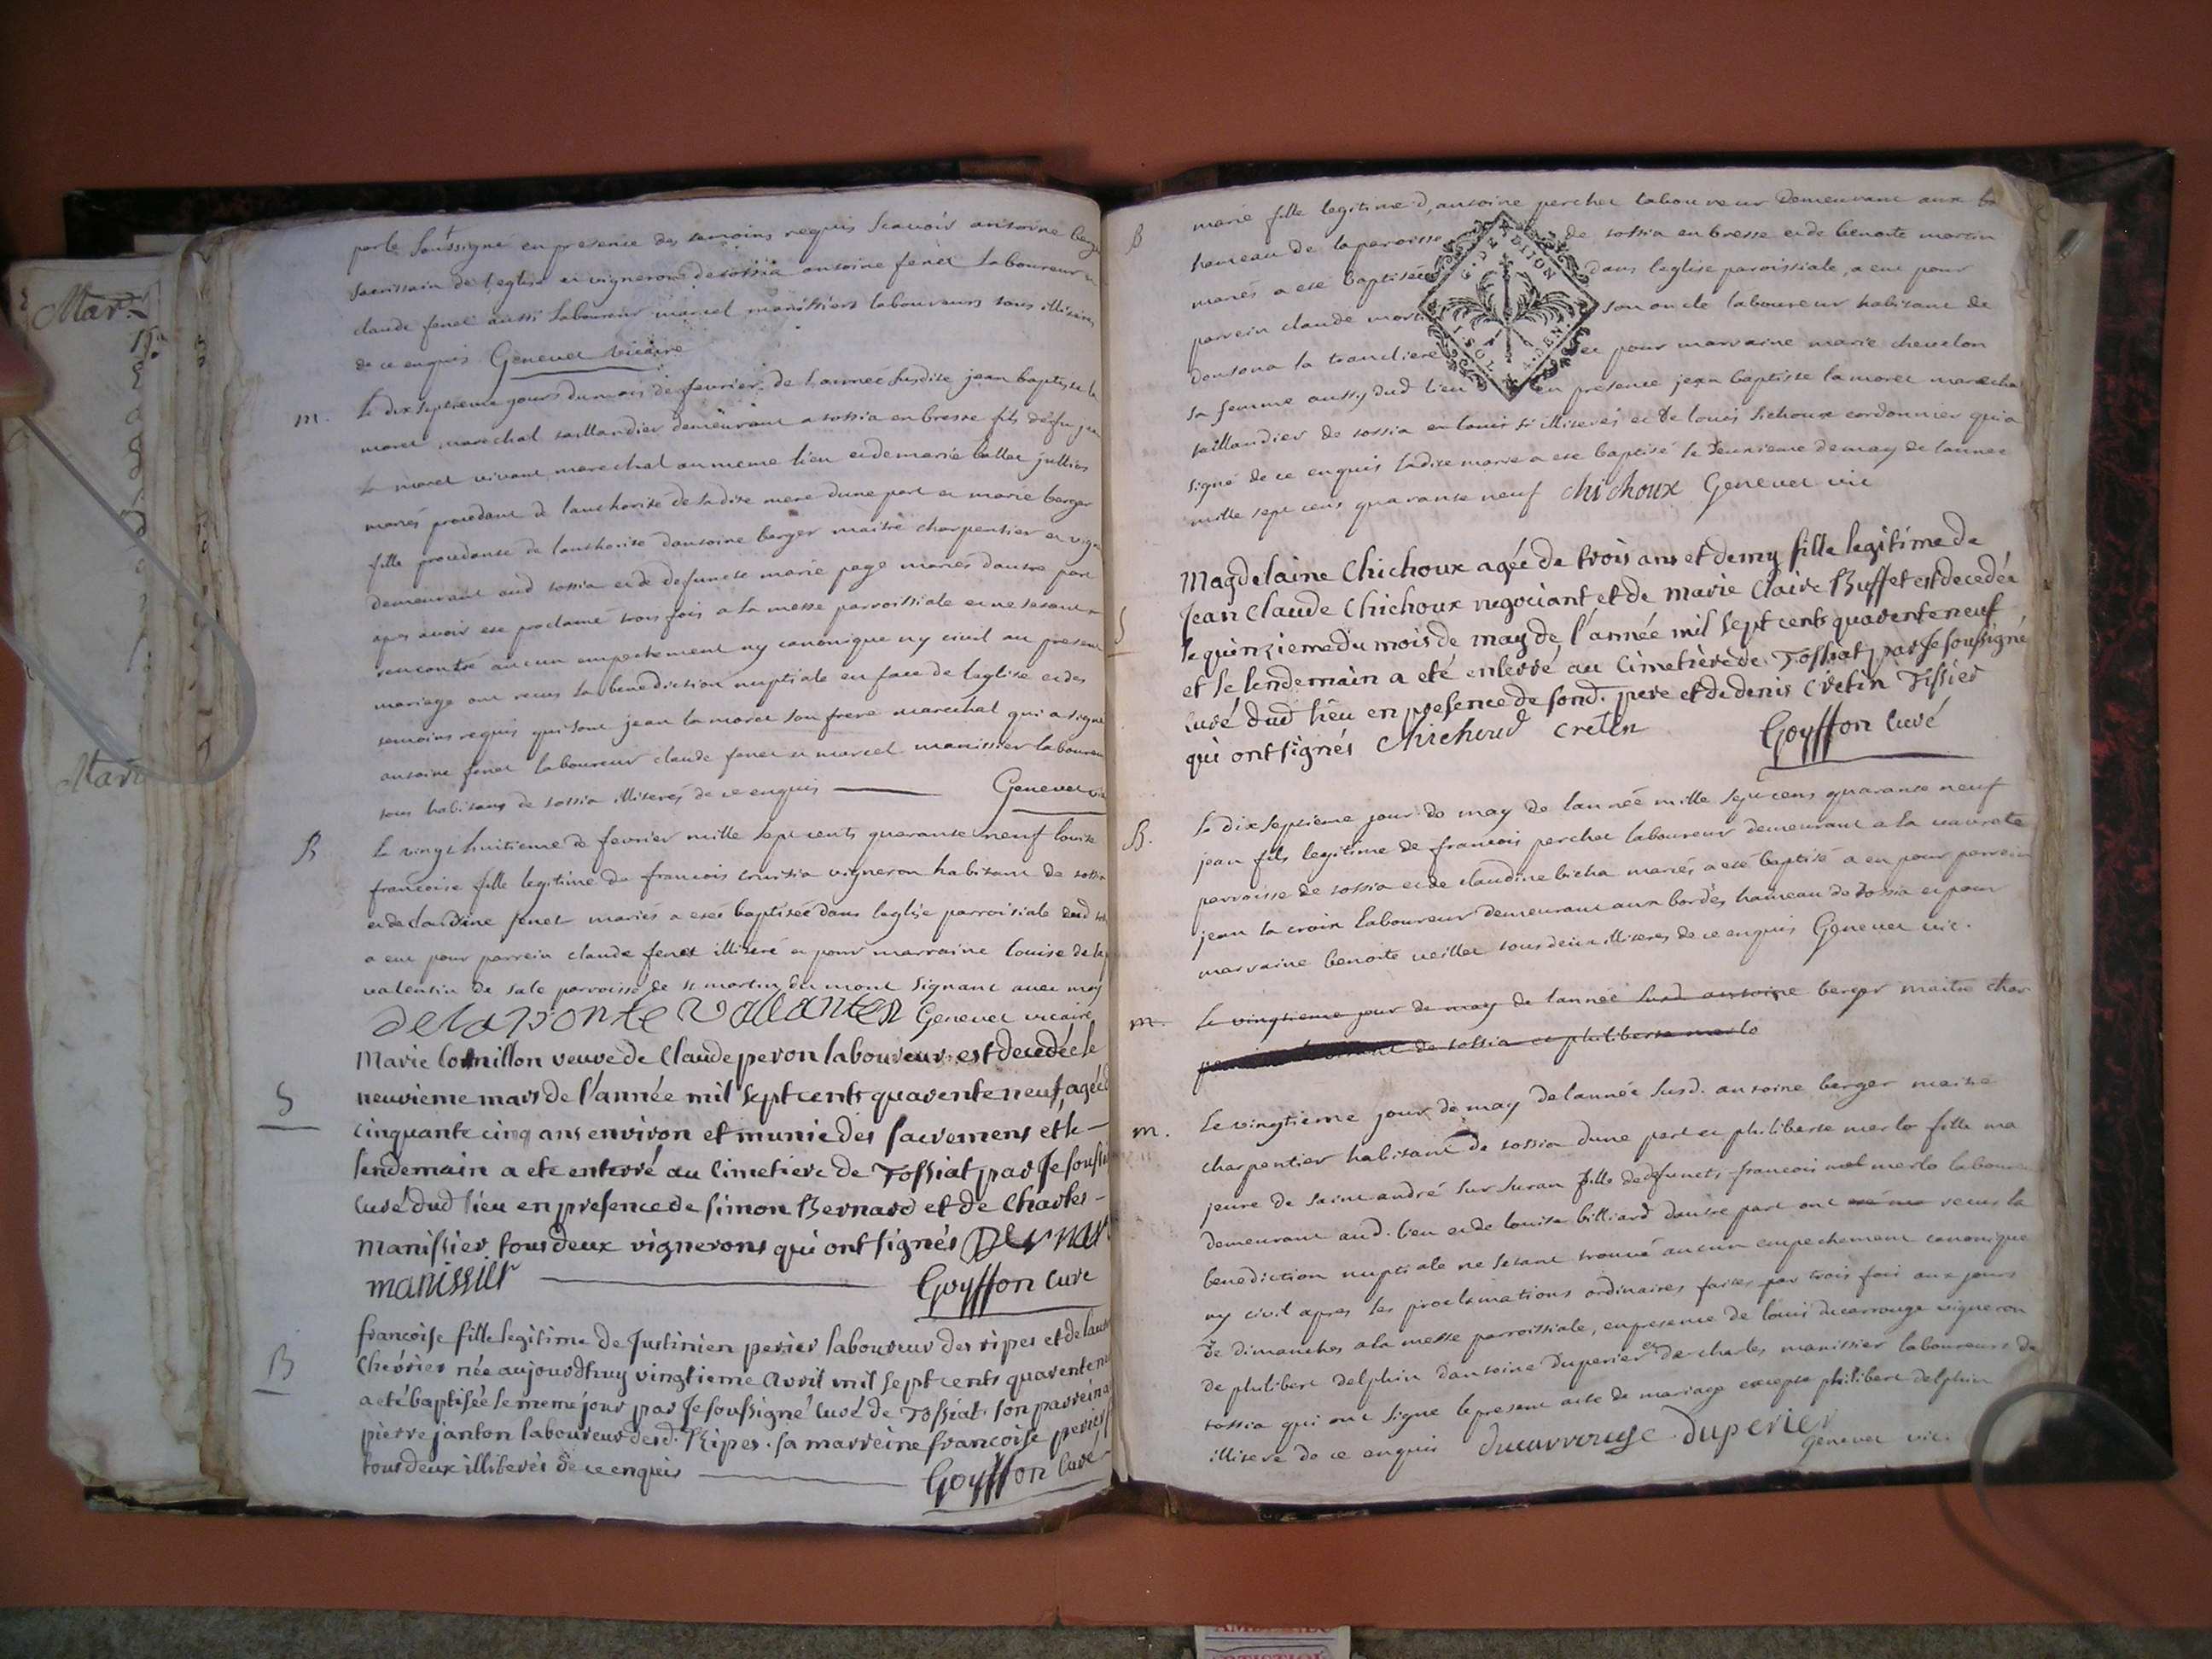 Mar.
Mari
par le soussigné en presence des temoins requis scavoir antoine berger
sacristain de leglise et vigneron de tossia antoine feret laboureur
claude feret aussi laboureur marcel manissiers laboureurs tous illiterés
de ce enquis Genevet vicaire
m.
le dix septieme jours du mois de fevrier de lannée susdite jean baptiste la
moret marechal taillandier demeurant a tossia en bresse fils defu jean
la moret vivant marechal au meme lieu et de marie ballet jullin
mariés procedant de lauthorité de ladite mere dune part et marie berger
fille procedante de lauthorité dantoine berger maitre charpentier et vign
demeurant aud tossia et de defuncte marie page mariés dautre part
apres avoir eté proclamé trois fois a la messe parroissiale et ne sestant
rencontré aucun empechement ny canonique ny civil au present
mariage ont recus la benediction nuptiale en face de leglise et des
temoins requis qui sont jean la moret son frere marechal qui a signé
antoine feret laboureur claude feret et marcel manissier laboureur
tous habitans de tossia illiterés de ce enquis Genevet vic
B
le vingt huitieme de fevrier mille sept cents quarante neuf louise
francoise fille legitime de francois cruitia vigneron habitant de tossia
et de claudine feret mariés a eté baptisée dans leglise parroissiale dud
a eut pour parrein claude feret illiteré et pour marraine louise dela
valentin de sale parroisse de st martin du mont signant avec moy
delaponte valanten Genevet vicaire
S
Marie Cornillon veuve de Claude peron laboureur est decedée le
neuvieme mars de l'année mil sept cents quarente neuf, agée d
cinquante cinq ans environ et munie des sacremens et le
lendemain a eté enterré au Cimetiere de Tossiat par Je soussi
Curé dud lieu en presence de simon Bernard et de Charles
manissier tous deux vignerons qui ont signés Bernar
manissier Goyffon Curé
B
francoise fille legitime de Justinien perier laboureur des ripes et de
Chevrier née aujourdhuy vingtieme avril mil sept cents quarente n
a eté baptisée le meme jour par Je soussigné Curé de Tossiat son parrein a
pierre janton laboureur desd. Ripes. sa marreine francoise perier
tous deux illiterés de ce enquis Goyffon Curé
B
marie fille legitime d'antoine perchet laboureur demeurant aux bo
hameau de la paroisse de tossia en bresse et de benoite martin
mariés a eté baptisée dans leglise paroissiale, a eut pour
parrein claude mort son oncle laboureur habitant de
donsona la trancliere et pour marraine marie chevelon
sa femme aussy dud lieu en presence jean baptiste la moret marechal
taillandier de tossia et louis si illiterés et de louis sichoux cordonnier qui a
signé de ce enquis ladite marie a eté baptisé le deuxieme de may de lannee
mille sept cens quarante neuf chichoux Genevet vic
G. D. DE DIJON
S
Magdelaine Chichoux agée de trois ans et demy fille legitime de
Jean Claude Chichoux negociant et de marie Claire Buffet est decedée
le quinzieme du mois de may de l'année mil sept cents quarente neuf
et le lendemain a eté enterré au Cimetiere de Tossiat par Je soussigné
Curé dud lieu en presence de sond. pere et de denis Cretin Tissier
qui ont signés Chichoud cretin Goyffon Curé
B.
le dix septieme jour de may de lannée mille sept cens quarante neuf
jean fils legitime de francois perchet laboureur demeurant a la vavrete
parroisse de tossia et de claudine bicha mariés a eté baptisé a eu pour parrein
jean la croix laboureur demeurant aux bordes hameau de tossia et pour
marraine benoite veillet tous deux illiterés de ce enquis Genevet vic.
m.
le vingtieme jour de may de lannée susd antoine berger maitre char
de tossia et philiberte merlo
m.
le vingtieme jour de may de lannée susd. antoine berger maitre
charpentier habitant de tossia dune part et philiberte merlo fille ma
jeure de saint andré sur suran fille de defuncts francois mel merlo laboureur
demeurant aud. lieu et de louise billiard dautre part ont recus la
benediction nuptiale ne sétant trouvé aucun empechement canonique
ny civil apres les proclamations ordinaires faites par trois fois aux jours
de dimanches a la messe parroissiale, en presence de louis ducarrouge vigneron
de philibert delphin dantoine duperier et de charles manissier laboureurs de
tossia qui ont signé le present acte de mariage excepté philibert delphin
illiteré de ce enquis ducarrouge duperier
Genevet vic.